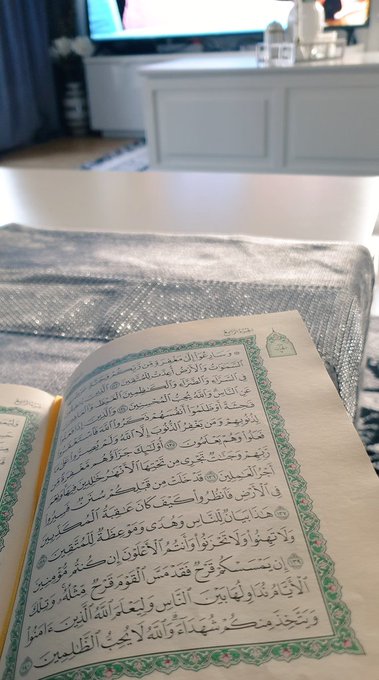 الجزء الرابع
۞ وَسَارِعُوٓا۟ إِلَىٰ مَغْفِرَةٍ مِّن رَّبِّكُمْ
ٱلسَّمَٰوَٰتُ وَٱلْأَرْضُ أُعِدَّتْ لِلْمُتَّقِينَ
فِى ٱلسَّرَّآءِ وَٱلضَّرَّآءِ وَٱلْكَٰظِمِينَ ٱلْغَيْظَ
عَنِ ٱلنَّاسِ وَٱللَّهُ يُحِبُّ ٱلْمُحْسِنِينَ ١٣٤ وَٱلَّذِينَ إِذَا
فَٰحِشَةً أَوْ ظَلَمُوٓا۟ أَنفُسَهُمْ ذَكَرُوا۟ ٱللَّهَ فَٱسْتَغْفَرُوا۟
لِذُنُوبِهِمْ وَمَن يَغْفِرُ ٱلذُّنُوبَ إِلَّا ٱللَّهُ وَلَمْ يُصِرُّوا۟ عَلَىٰ
فَعَلُوا۟ وَهُمْ يَعْلَمُونَ ١٣٥ أُو۟لَٰٓئِكَ جَزَآؤُهُم مَّغْفِرَةٌ مِّن
رَّبِّهِمْ وَجَنَّٰتٌ تَجْرِى مِن تَحْتِهَا ٱلْأَنْهَٰرُ خَٰلِدِينَ فِيهَا
أَجْرُ ٱلْعَٰمِلِينَ ١٣٦ قَدْ خَلَتْ مِن قَبْلِكُمْ سُنَنٌ فَسِيرُوا۟
فِى ٱلْأَرْضِ فَٱنظُرُوا۟ كَيْفَ كَانَ عَٰقِبَةُ ٱلْمُكَذِّبِينَ
١٣٧ هَٰذَا بَيَانٌ لِّلنَّاسِ وَهُدًى وَمَوْعِظَةٌ لِّلْمُتَّقِينَ ١٣٨
وَلَا تَهِنُوا۟ وَلَا تَحْزَنُوا۟ وَأَنتُمُ ٱلْأَعْلَوْنَ إِن كُنتُم مُّؤْمِنِينَ ١٣٩
إِن يَمْسَسْكُمْ قَرْحٌ فَقَدْ مَسَّ ٱلْقَوْمَ قَرْحٌ مِّثْلُهُۥ وَتِلْكَ
ٱلْأَيَّامُ نُدَاوِلُهَا بَيْنَ ٱلنَّاسِ وَلِيَعْلَمَ ٱللَّهُ ٱلَّذِينَ ءَامَنُوا۟
وَيَتَّخِذَ مِنكُمْ شُهَدَآءَ وَٱللَّهُ لَا يُحِبُّ ٱلظَّٰلِمِينَ ١٤٠